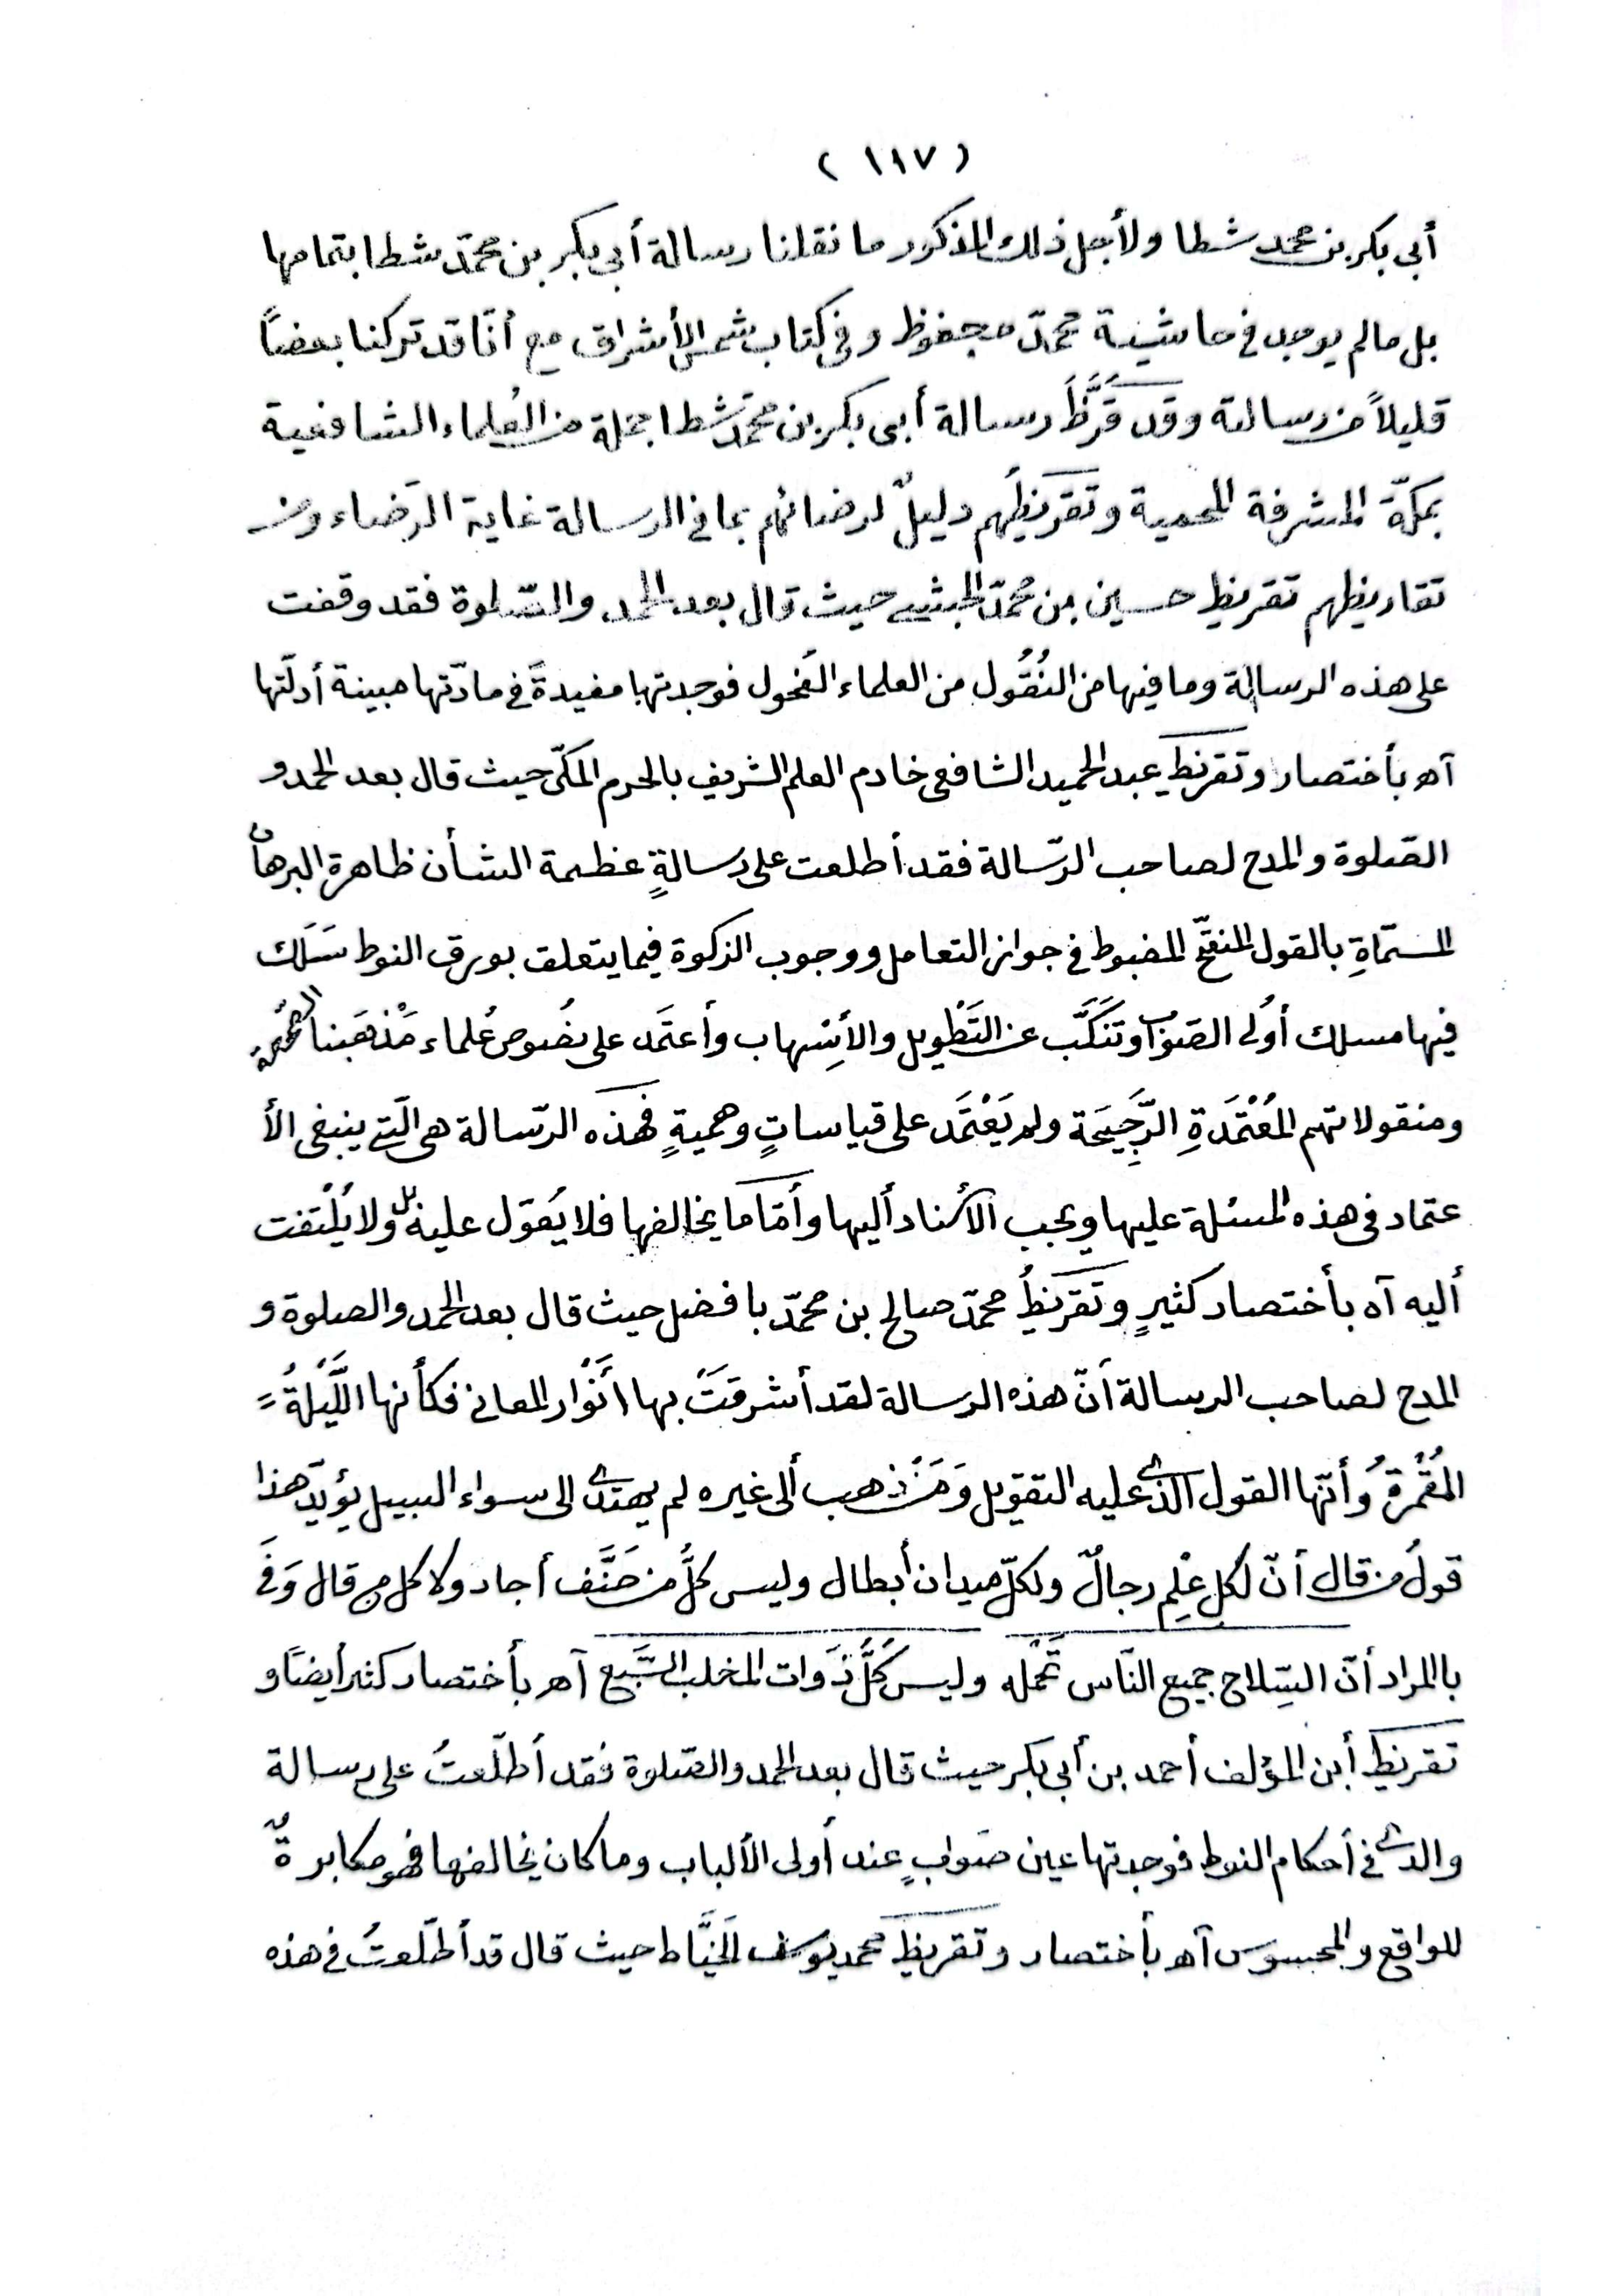 ( ١١٧ )
أبى بكر بن محمد شطا ولأجل ذلك المذكور ما نقلنا رسالة أبى بكر بن محمّد شطا بتمامها
بل ما لم يوجد فى حاشية محمّد محفوظ وفى كتاب شمس الأشراق مع أنّا قد تركنا بعضاً
قليلاً من رسالته وقد قَرَّظَ رسالة أبى بكر بن محمّد شطا جملة من العُلماء الشافعية
بمكّة المشرفة المحمية وتقريظُهم دليلٌ لرضائهم بما فى الرسالة غاية الرّضاء ومن
تقاريظهم تقريظ حسين بن محمّد الحبشى حيث قال بعد الحمد والصّلوة فقد وقفت
على هذه الرسالة وما فيها من النُقُول من العلماء الفُحول فوجدتها مفيدةً فى مادّتها مبينة أدلّتها
آه بأختصار وتقريظ عبد الحميد الشافعى خادم العلم الشريف بالحرم المكّى حيث قال بعد الحمد و
الصّلوة والمدح لصاحب الرّسالة فقد أطلعت على رسالةٍ عظيمة الشأن ظاهرة البرهان
المسمّاةِ بالقول المنقّح المضبوط فى جواز التعامل ووجوب الزكوة فيما يتعلق بورق النوط سَلَك
فيها مسلك أُولى الصَوَاب وتَنَكَّب عن التَطْويل والأسْهاب وأعتَمَد على نصُوص عُلماء مَذْهَبنا الصَّحيحة
ومنقولاتهم المُعْتَمَدَةِ الرَّجِيحَة ولم يَعْتَمَد على قياساتٍ وهميةٍ فهذه الرّسالة هى الّتى ينبغى الأ
عتماد فى هذه المسئلة عليها ويجب الأسناد أليها وأمّا ما يخالفها فلا يُعَوّل عليه بل ولا يُلْتفت
أليه آه بأختصار كثيرٍ وتقريظُ محمّد صالح بن محمّد بافضل حيث قال بعد الحمد والصلوة و
المدح لصاحب الرسالة أنّ هذه الرسالة لقد أشرقتْ بها أنْوار المعانى فكأنها اللَّيْلةُ
المُقْمرةُ وأنّها القول الّذى عليه التقويل وَمَنْ ذهب ألى غيره لم يهتدى الى سواء السبيل يؤيّد هذا
قولُ من قال أنّ لكل عِلْمٍ رجالٌ ولكلّ ميدان أبطال وليس كلُّ من صَنَّف أجاد ولا كل من قال وَفَى
بالمراد أنّ السِّلاح جميع النّاس تَحْمله وليس كُلُّ ذَوات المخلب السَّبُع آه بأختصار كثير أيضًا و
تقريظ أبن المؤلف أحمد بن أبى بكر حيث قال بعد الحمد والصّلوة فقد أطّلعتُ على رسالة
والدى فى أحكام النوط فوجدتها عين صَوابٍ عند أولى الألباب وما كان يخالفها فهو مكابرةٌ
للواقع والمحسوس آه بأختصار وتقريظ محمد يوسف الخيَّاط حيث قال قد أطّلعتُ فى هذه